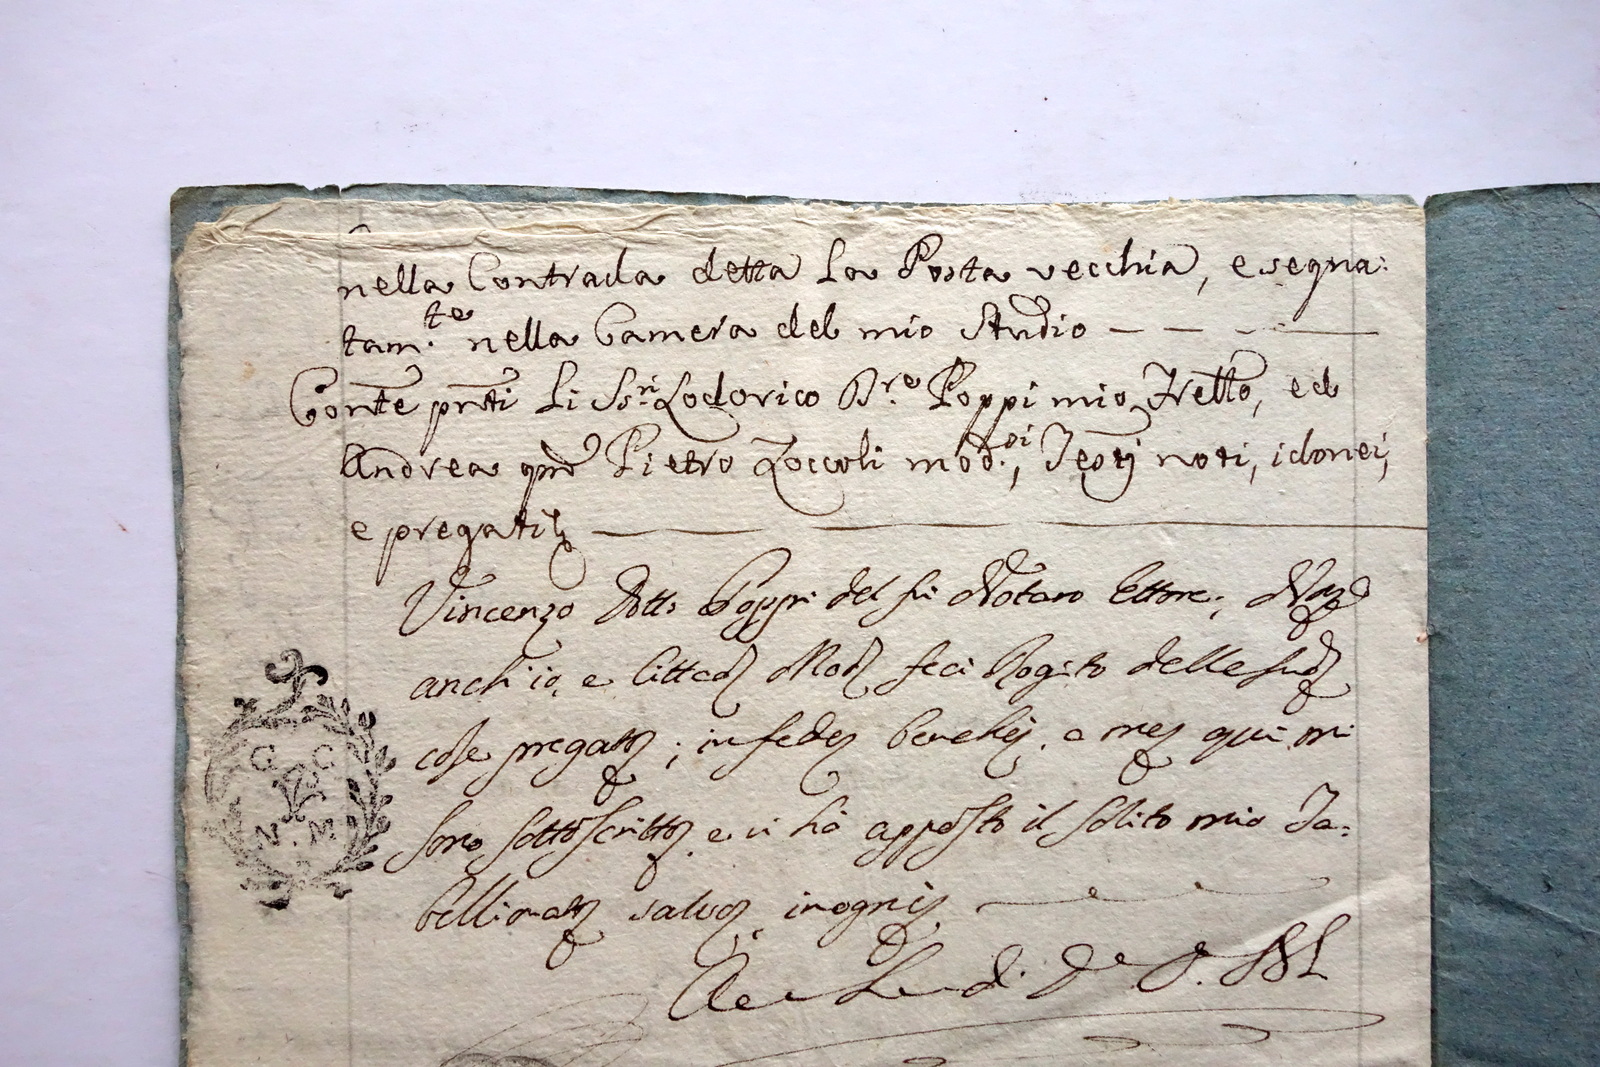 nella Contrada detta La Posta vecchia, e segna:
tam.te nella Camera del mio Studio
Conte pnti Li Ssri Lodovico D.re Poppi mio Fretto, ed
Andrea qm Pietro Zoccoli mod.si, Testj noti, idonei,
e pregati
Vincenzo Dott. Poppi del fu Notaro Ettore;
anch'io, e Cittad Mod feci Rogito delle sud
cose pregato; in fede e me qui mi
sono sottoscritto e vi hò apposto il solito mio Ta:
salvo in ogni
G C
N. M.